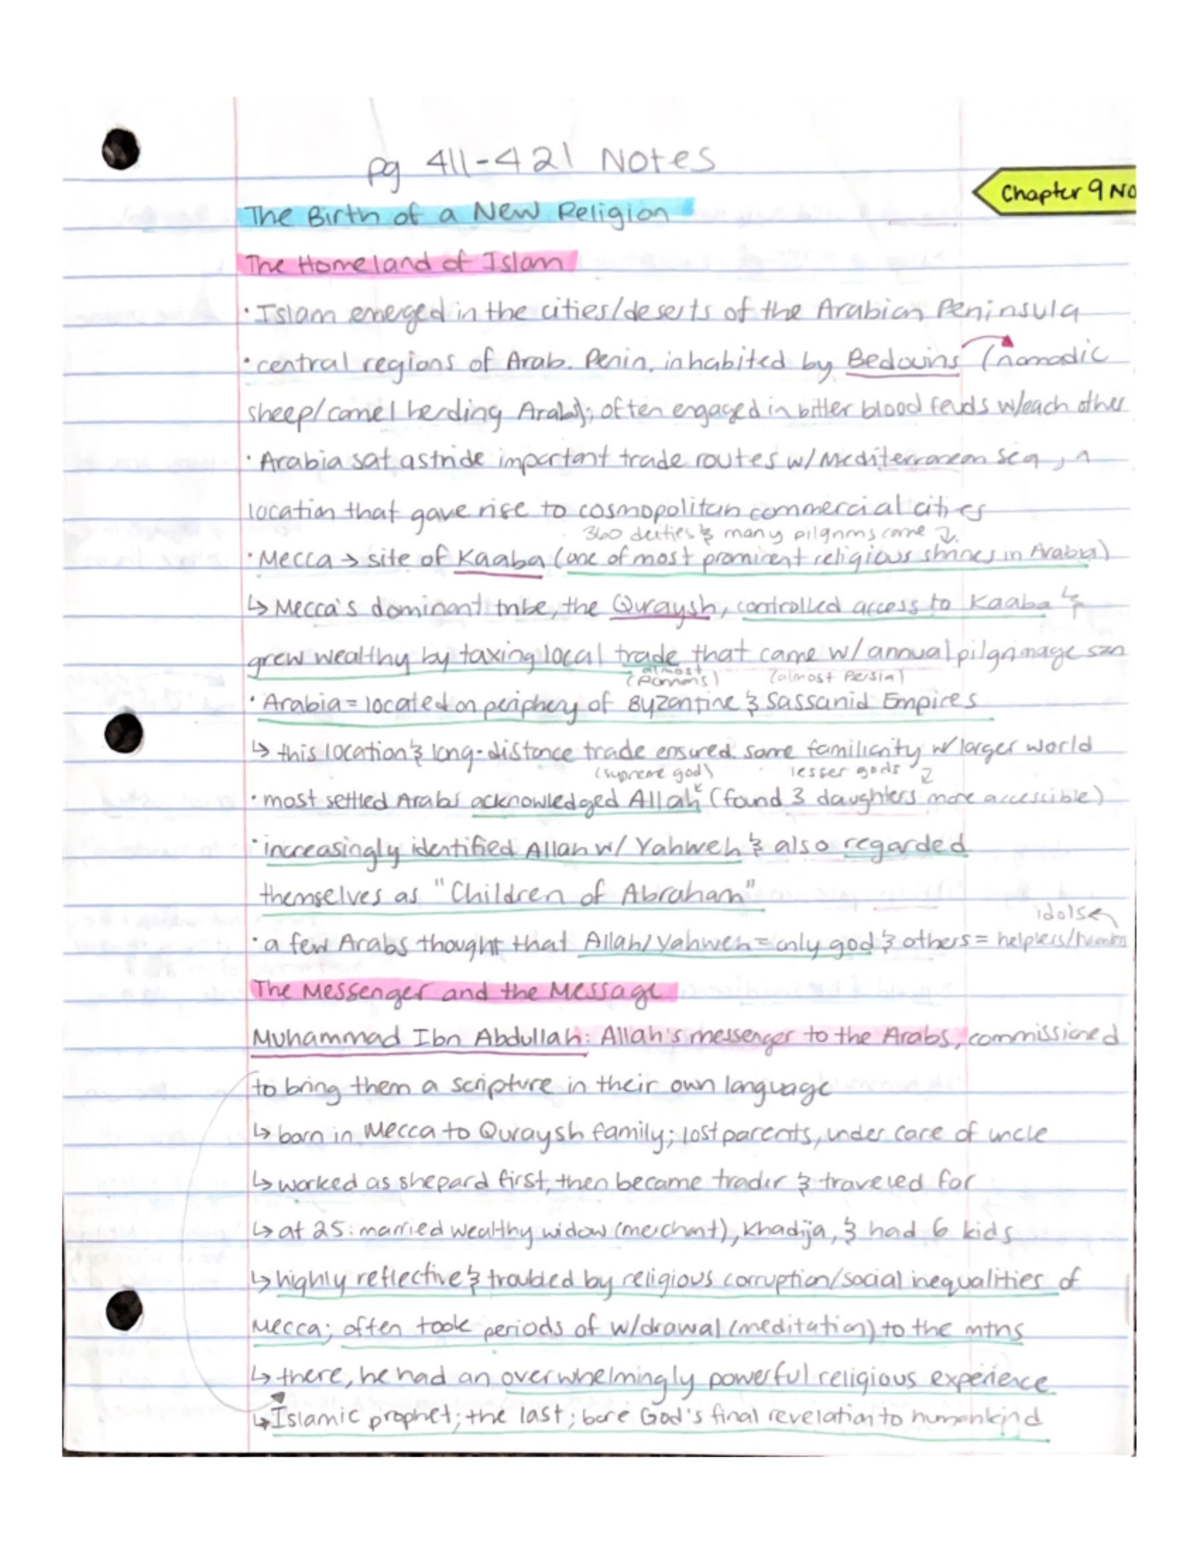 pg 411-421 Notes
Chapter 9 No
The Birth of a New Religion
The Homeland of Islam
· Islam emerged in the cities/deserts of the Arabian Peninsula
· central regions of Arab. Penin. inhabited by Bedouins (nomadic
sheep/camel herding Arabs); often engaged in bitter blood feuds w/each other
· Arabia sat astride important trade routes w/ Mediterranean Sea, a
location that gave rise to cosmopolitan commercial cities
360 deities & many pilgrims came ↴
· Mecca → site of Kaaba (one of most prominent religious shrines in Arabia)
↳ Mecca's dominant tribe, the Quraysh, controlled access to Kaaba &
grew wealthy by taxing local trade that came w/ annual pilgrimage szn
(almost Romans) (almost Persia)
· Arabia = located on periphery of Byzantine & Sassanid Empires
↳ this location & long-distance trade ensured some familiarity w/ larger world
(supreme god) lesser gods ↴
· most settled Arabs acknowledged Allah (found 3 daughters more accessible)
· increasingly identified Allah w/ Yahweh & also regarded
themselves as "Children of Abraham"
idols
· a few Arabs thought that Allah/Yahweh = only god & others = helpers/
The Messenger and the Message
Muhammad Ibn Abdullah: Allah's messenger to the Arabs, commissioned
to bring them a scripture in their own language
↳ born in Mecca to Quraysh family; lost parents, under care of uncle
↳ worked as shepard first, then became trader & traveled far
↳ at 25: married wealthy widow (merchant), Khadija, & had 6 kids
↳ highly reflective & troubled by religious corruption/social inequalities of
Mecca; often took periods of w/drawal (meditation) to the mtns
↳ there, he had an overwhelmingly powerful religious experience
↳ Islamic prophet; the last; bore God's final revelation to humankind